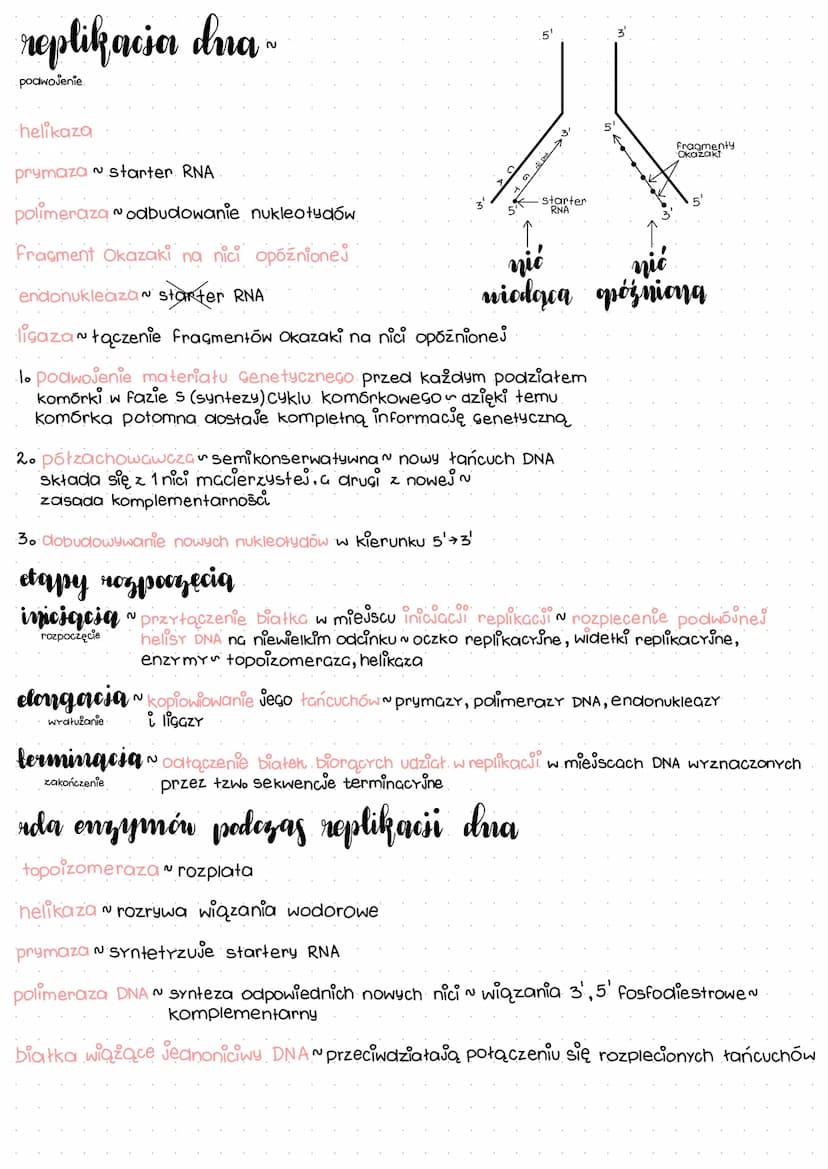 replikacja dna ~
podwojenie
helikaza
prymaza ~ starter RNA
polimeraza ~ odbudowanie nukleotydów
fragment Okazaki na nici opóźnionej
endonukleaza ~ starter RNA
ligaza ~ łączenie fragmentów Okazaki na nici opóźnionej
5'
3'
3'
5'
A C
T G
DNA
fragmenty
Okazaki
3'
5'
starter
RNA
5'
3'
nić
wiodąca
nić
opóźniona
1. podwojenie materiału genetycznego przed każdym podziałem
komórki w fazie S (syntezy) cyklu komórkowego ~ dzięki temu
komórka potomna dostaje kompletną informację genetyczną
2. półzachowawcza ~ semikonserwatywna ~ nowy łańcuch DNA
składa się z 1 nici macierzystej, a drugi z nowej ~
zasada komplementarności
3. dobudowywanie nowych nukleotydów w kierunku 5'→3'
etapy rozpoczęcia
inicjacja ~ przyłączenie białka w miejscu inicjacji replikacji ~ rozplecenie podwójnej
rozpoczęcie
helisy DNA na niewielkim odcinku ~ oczko replikacyjne, widełki replikacyjne,
enzymy ~ topoizomeraza, helikaza
elongacja ~ kopiowiowanie jego łańcuchów ~ prymazy, polimerazy DNA, endonukleazy
wydłużanie
i ligazy
terminacja ~ odłączenie białek biorących udział w replikacji w miejscach DNA wyznaczonych
zakończenie
przez tzw. sekwencje terminacyjne
rola enzymów podczas replikacji dna
topoizomeraza ~ rozplata
helikaza ~ rozrywa wiązania wodorowe
prymaza ~ syntetyzuje startery RNA
polimeraza DNA ~ synteza odpowiednich nowych nici ~ wiązania 3',5' fosfodiestrowe ~
komplementarny
białka wiążące jednoniciwy DNA ~ przeciwdziałają połączeniu się rozplecionych łańcuchów